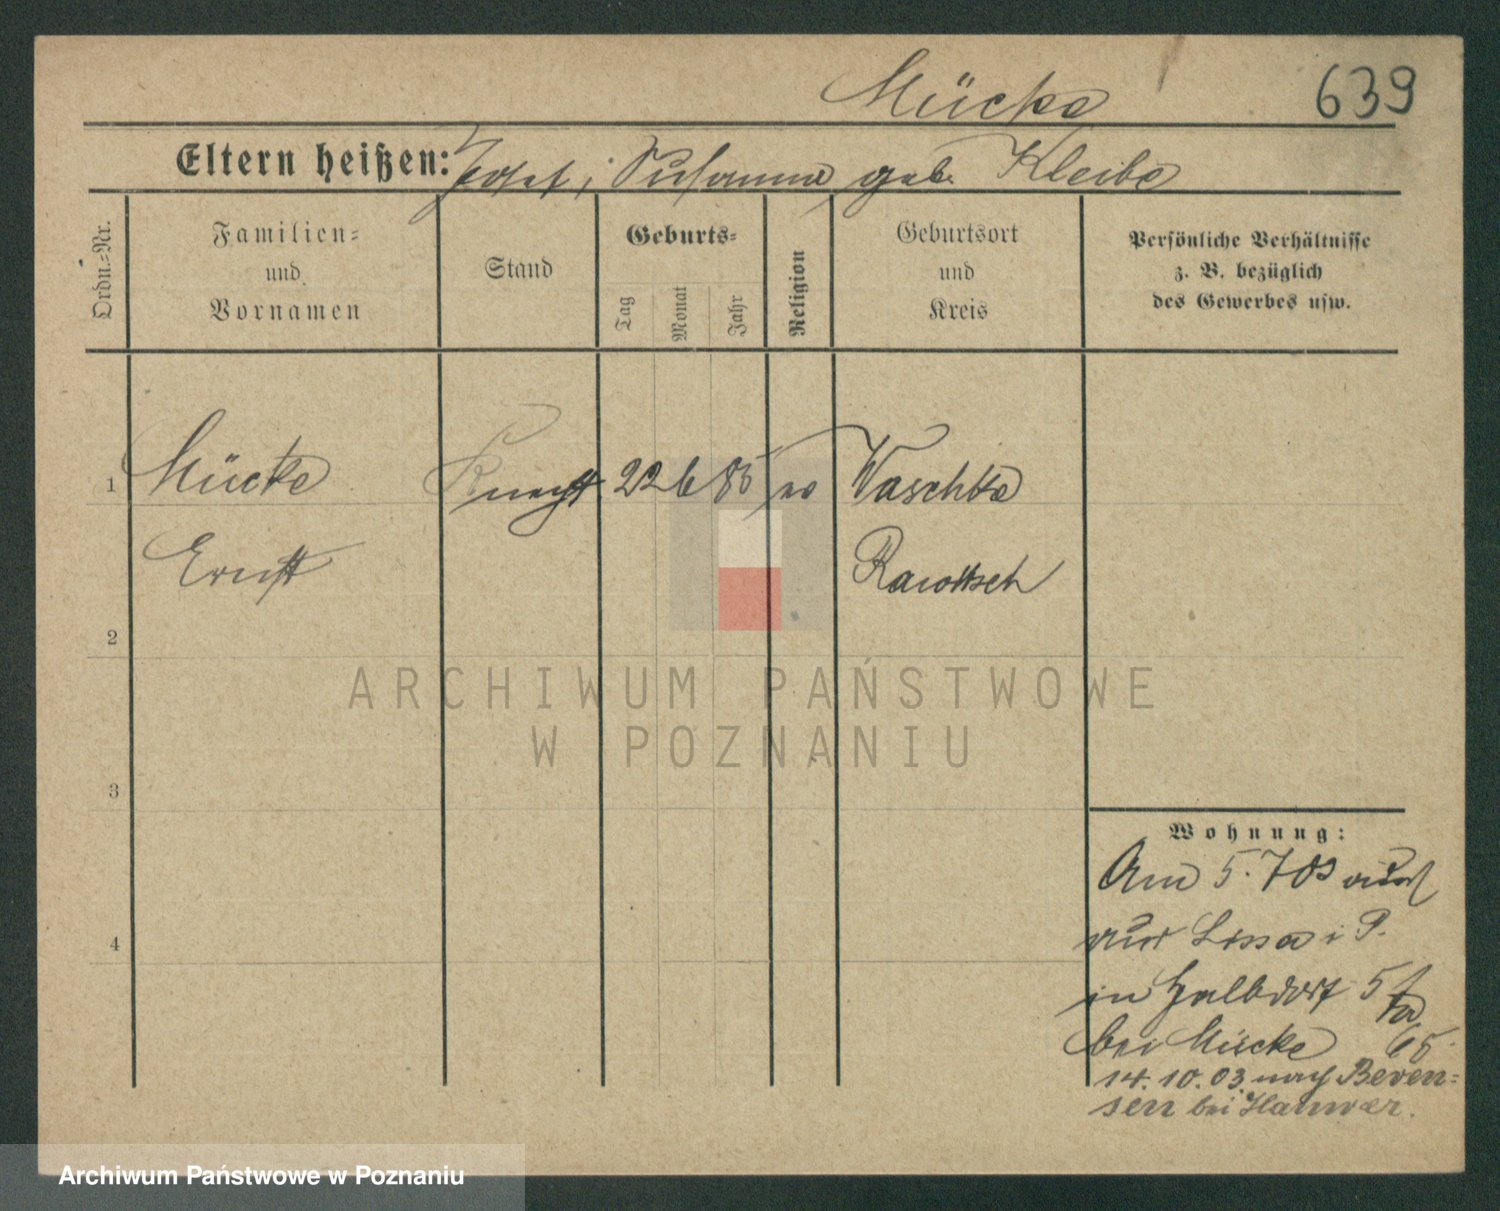 Mücke
639
Eltern heißen: Josef, Susanna geb. Kleibe
Ordn.-Nr.
Familien-
und
Vornamen
Stand
Geburts-
Tag
Monat
Jahr
Religion
Geburtsort
und
Kreis
Persönliche Verhältnisse
z. B. bezüglich
des Gewerbes usw.
1 Mücke Knecht 22 6 85 Waschke
Ernst Rawitsch
2
3
4
ARCHIWUM PAŃSTWOWE
W POZNANIU
Wohnung:
Am 5.7 03
aus Lissa i P.
in Halbdorf 5
bei Mücke 65
14.10.03 nach Beven-
sen bei Hannover.
Archiwum Państwowe w Poznaniu